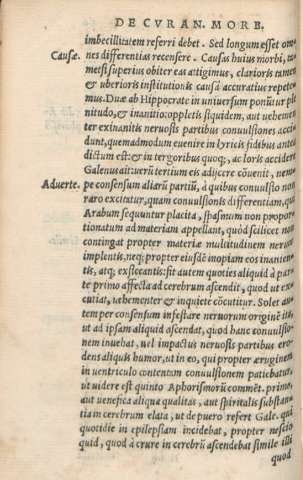 DE CVRAN. MORB.
imbecillitatem referri debet. Sed longum esset om-
Causæ. nes differentias recensere. Causas huius morbi, ta-
metsi superius obiter eas attigimus, clarioris tamen
& uberioris institutionis causa accuratius repete-
mus. Duæ ab Hippocrate in uniuersum ponũtur ple
nitudo, & inanitio: oppletis siquidem, aut uehemen
ter exinanitis neruosis partibus conuulsiones accidũt
dunt, quemadmodum euenire in lyricis fidibus antè
dictum est: & in tergoribus quoq;, ac loris accidere.
Galenus alteram tertium eis adijcere cõuenit, nem-
Aduerte. pe consensum aliarũ partiũ, à quibus conuulsio non
raro excitatur, quam conuulsionis differentiam, qui
Arabum sequuntur placita, spasmum non propor-
tionatum ad materiam appellant, quòd scilicet non
contingat propter materiæ multitudinem neruos
implentis, neq; propter eiusdẽ inopiam eos inanien-
tis, atq; exsiccantis: sit autem quoties aliquid à par-
te primo affecta ad cerebrum ascendit, quod ut ex-
cutiat, uehementer & inquietè cõcutitur. Solet au-
tem per consensum infestare neruorum originẽ ita,
ut ad ipsam aliquid ascendat, quod hanc conuulsio-
nem inuehat, uel impactus neruosis partibus ero-
dens aliquis humor, ut in eo, qui propter æruginem
in uentriculo contentam conuulsionem patiebatur,
ut uidere est quinto Aphorismorũ commẽt. primo,
aut uenefica aliqua qualitas, aut spiritalis substan-
tia in cerebrum elata, ut de puero refert Gale. qui
quotidie in epilepsiam incidebat, propter nescio
quid, quod à crure in cerebrũ ascendebat simile illi
quod